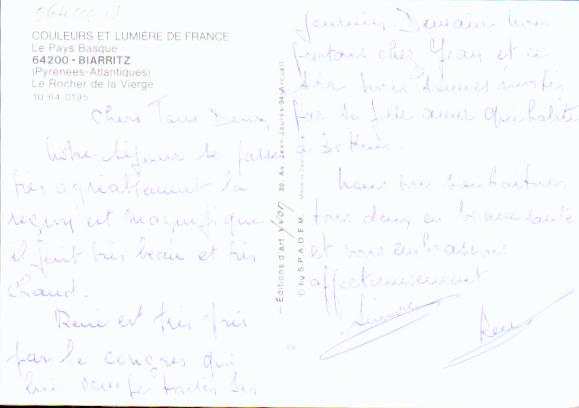 COULEURS ET LUMIÈRE DE FRANCE
Le Pays Basque
64200 - BIARRITZ
(Pyrénées-Atlantiques)
Le Rocher de la Vierge
10 64 0195
Chers Tous Deux,
Notre séjour se passe
très agréablement la
région est magnifique
il fait très beau et très
chaud.
René est très pris
par le congrès qui
lui occupe toutes ses
journées. Demain nous
partons chez Jean et ce
soir nous sommes invités
par sa fille qui habite
à
Nous vous souhaitons
tous deux en bonne santé
et vous embrassons
affectueusement
Simone
René
— Editions d'art yvon 30, Av. Jean-Jaurès-94-Arcueil
© by S.P.A.D.E.M.